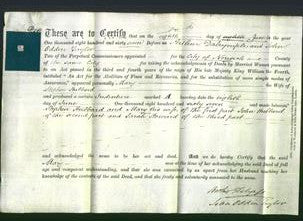 These are to Certify that on the eighth day of June in the year
One thousand eight hundred and sixty seven Before us Arthur Dalrymple and John
Oddin Taylor
Two of the Perpetual Commissioners appointed for the City of Norwich and
County of the same City for taking the acknowledgments of Deeds by Married Women pursuant
to an Act passed in the third and fourth years of the Reign of His late Majesty King William the Fourth,
intituled "An Act for the Abolition of Fines and Recoveries, and for the substitution of more simple modes of
Assurance," appeared personally Mary the Wife of
Hubbard
and produced a certain Indenture marked A bearing date the eighth
day of June One thousand eight hundred and sixty seven and made between
Hubbard and Mary his wife of the first part John Hubbard
of the second part and Sarah of the third part
and acknowledged the same to be her act and deed. And we do hereby Certify that the said
Mary
was at the time of her acknowledging the said Deed of full age and
competent understanding, and that she was examined by us apart from her Husband touching her
knowledge of the contents of the said Deed, and that she freely and voluntarily consented to the same.
Arthur Dalrymple
John Oddin Taylor